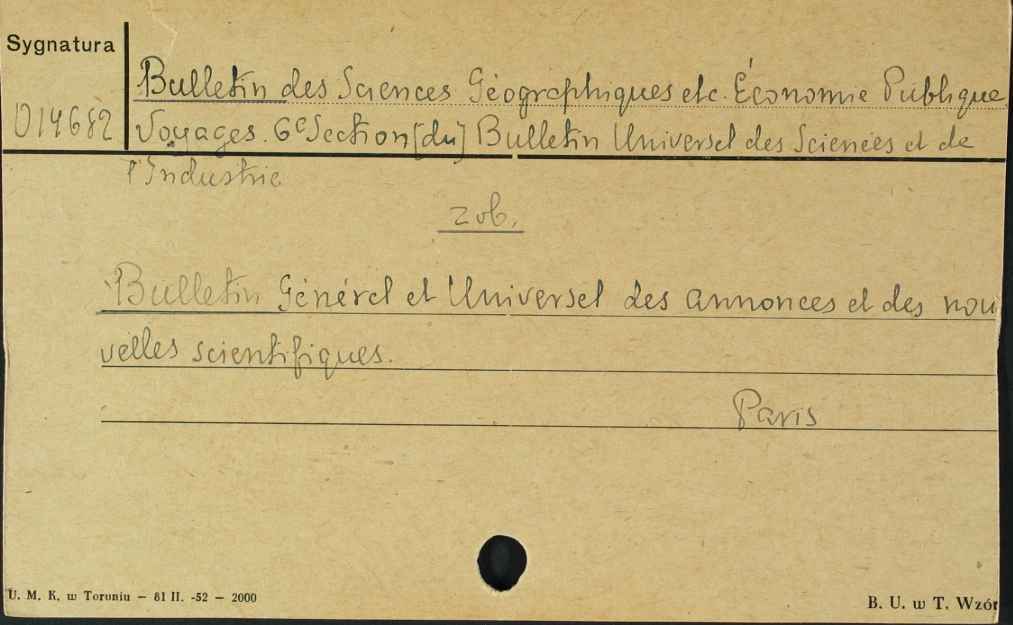 Sygnatura
014682
Bulletin des Sciences Géographiques etc. Économie Publique
Voyages. 6e Section [du] Bulletin Universel des Sciences et de
l'Industrie
zob.
Bulletin Général et Universel des annonces et des nou
velles scientifiques.
Paris
U. M. K. w Toruniu – 81 II. -52 – 2000
B. U. w T. Wzór